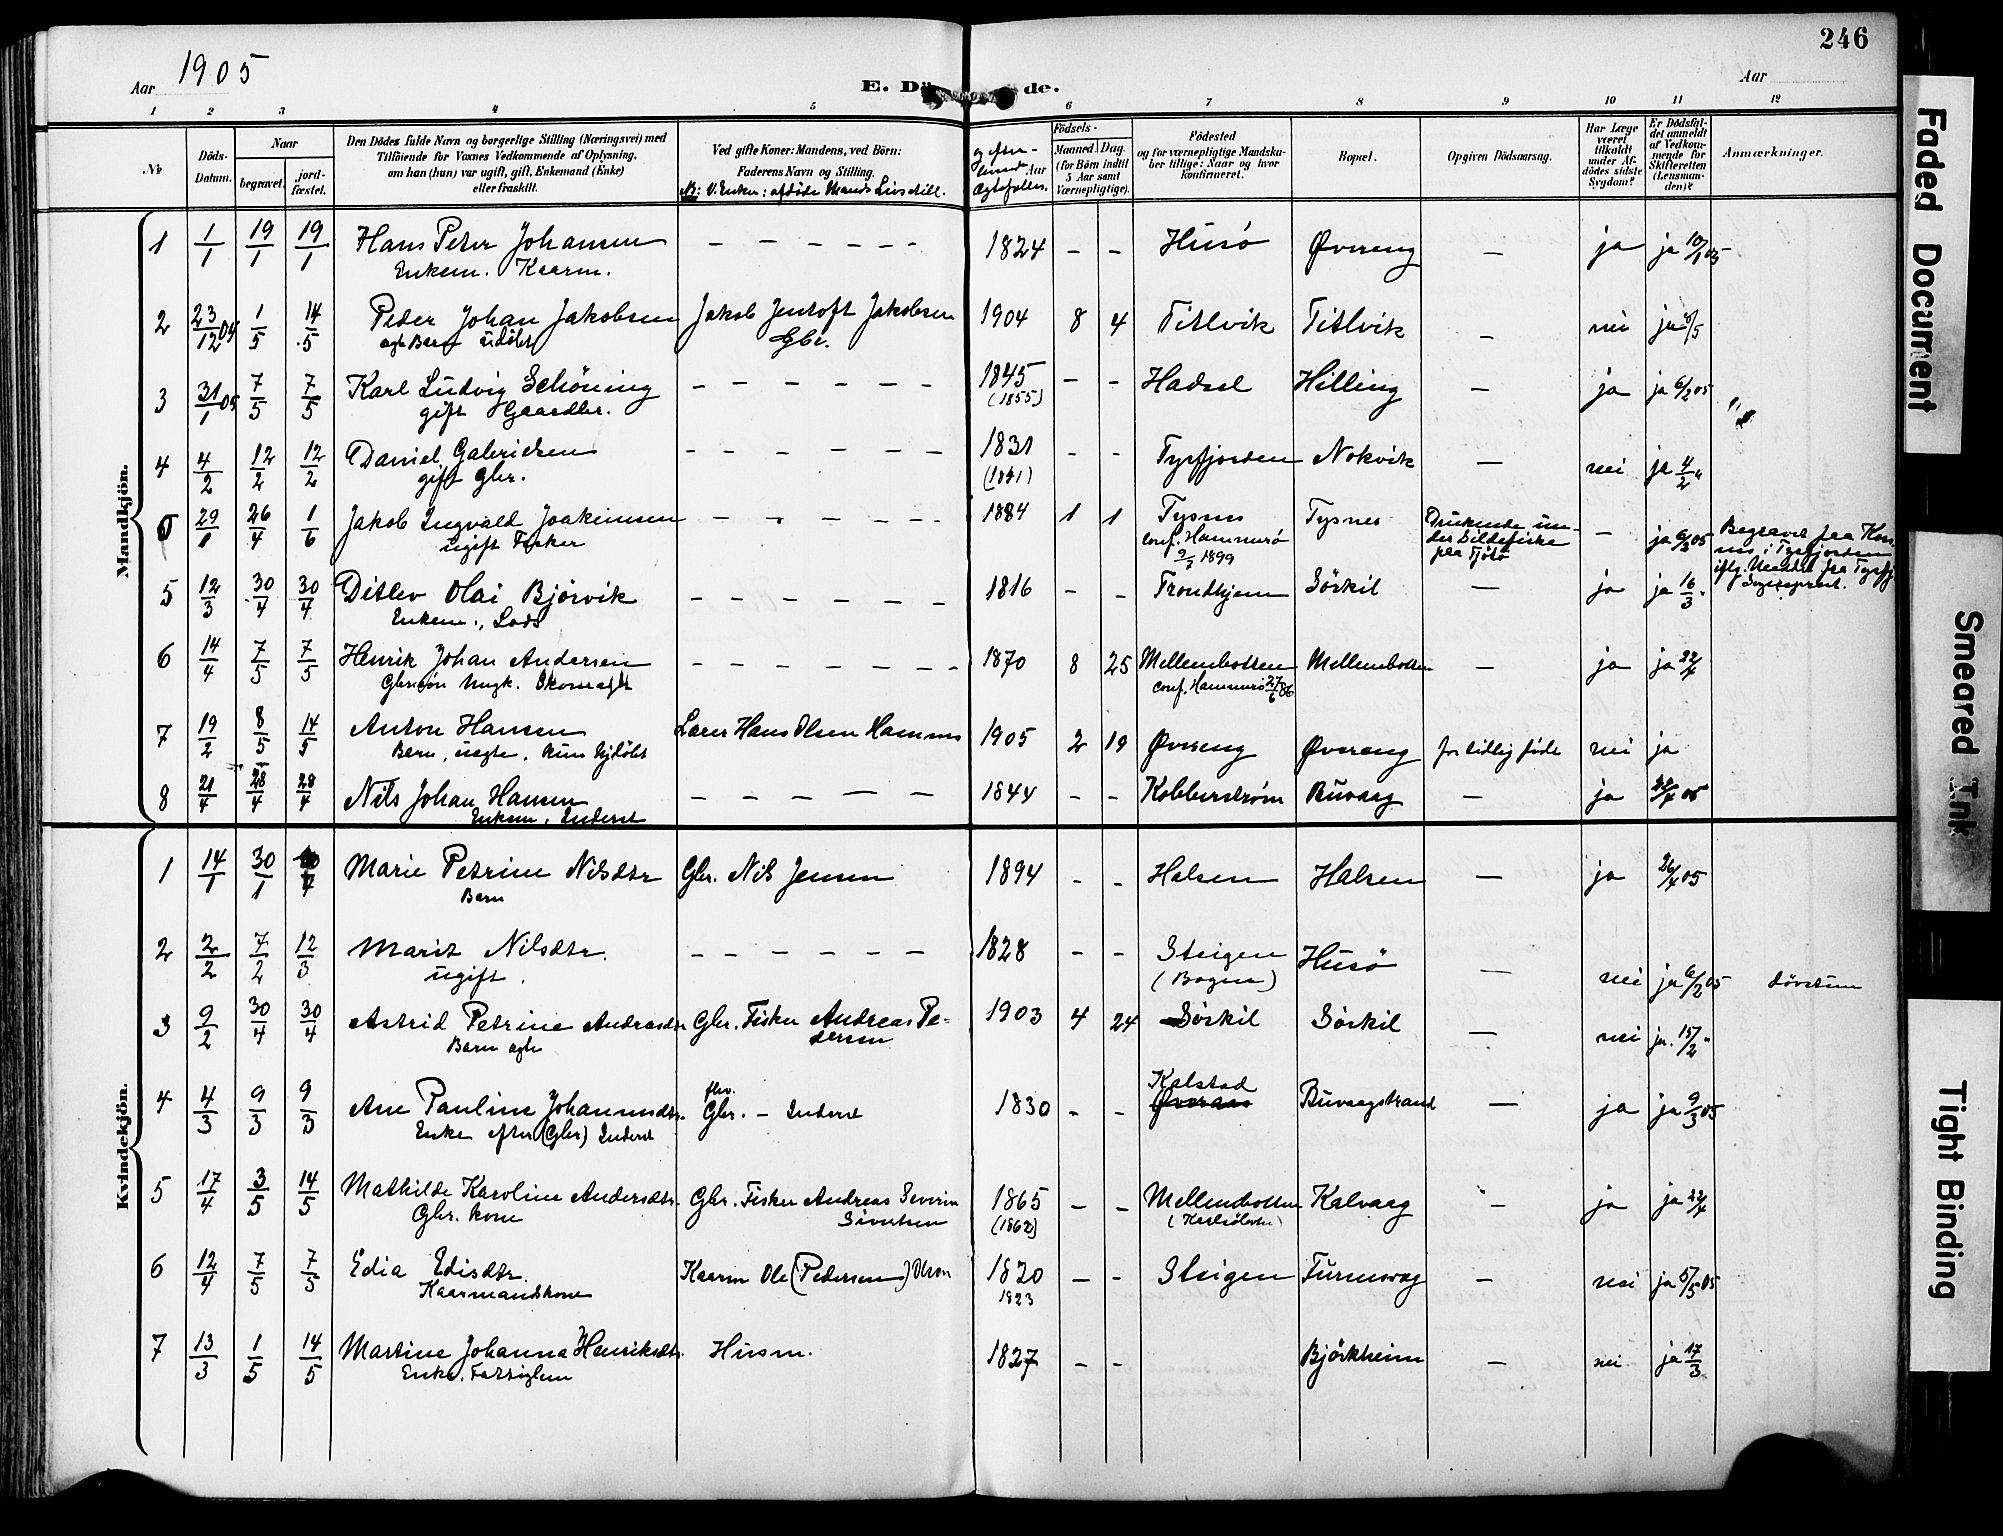 246
Aar 1905
E. Dö de.
Aar
1 2 3 4 5 6 7 8 9 10 11 12
No
Döds-
Datum.
Naar
begravet.
jord-
fæstet.
Den Dödes fulde Navn og borgerlige Stilling (Næringsvei) med
Tilföiende for Voxnes Vedkommende af Oplysning,
om han (hun) var ugift, gift, Enkemand (Enke)
eller fraskilt.
Ved gifte Koner: Mandens, ved Börn:
Faderens Navn og Stilling.
NB: V. Enker: afdøde Mands Livsstill.
Aar
Födsels-
Maaned Dag
(for Börn indtil
5 Aar samt
Værnepligtige).
Födested
og for værnepligtige Mandska-
ber tillige: Naar og hvor
konfirmeret.
Bopæl.
Opgiven Dödsaarsag.
Har Læge
været
tilkaldt
under Af-
dödes sidste
Sygdom?
Er Dödsfal-
det anmeldt
af Vedkom-
mende for
Skifteretten
(Lensman-
den)?
Anmærkninger.
Mandkjön.
1 1/1 19/1 19/1 Hans Peter Johansen – – – – – – 1824 – – Husø Øvereng — ja ja 10/1 05
Enkem. Kaarm.
2 23/12 04 1/5 14/5 Peder Johan Jakobsen Jakob Jentoft Jakobsen 1904 8 4 Titlvik Titlvik – nei
Gbr.
3 31/1 05 7/5 7/5 Karl Ludvig Schöning – – – – – – 1845 – – Hadsel Hilling — ja ja 6/2 05
gift Gaardbr. (1855)
4 4/2 12/2 12/2 Daniel Gabrielsen – – – – – – 1831 – – Tysfjorden Nokvik — nei ja 4/2 "
gift Gbr.
29/1 26/4 1/6 Jakob Ingvald Joakimsen – – – – – – 1884 1 1 Tysnes Tysnes Drukende un- – ja 6/3 05
ugift Fisker conf. Hammerö der Sildefiske
2/7 1899 paa Tjötö
Begravet fra
i Tysfjorden
5 12/3 30/4 30/4 Ditlev Olai Bjørvik – – – – – – 1816 – – Trondhjem Sörkil — ja ja 16/3 "
Enkem., Lods
6 14/4 7/5 7/5 Henrik Johan Andersen – – – – – – – 1870 8 25 Mellembotten Mellembotten — ja ja 22/4
conf. Hammerö 27/6 86
7 19/2 8/5 14/5 Anton Hansen Hans Olsen Hamnes 1905 2 19 Øvereng Øvereng for tidlig född nei ja
Barn, uegte, kun hjdöbt
8 21/4 28/4 28/4 Nils Johan Hansen – – – – – 1844 – – Kobberström Buvaag — ja 22/4 05
Enkem, Inderst
Kvindekjön.
1 14/1 30/1 Marie Petrine Nilsdtr Gbr. Nils Jensen 1894 – – Halsen Halsen — ja 26/4 05
Barn
2 2/2 7/2 12/3 Marit Nilsdtr. – – – – – – 1828 – – Steigen Husö — nei ja 6/2 05 dövstum
ugift. (Bogen)
3 9/2 30/4 30/4 Astrid Petrine Andreasdtr Gbr. Fisker Andreas Pe- 1903 4 24 Sörkil Sörkil — nei ja. 15/2 "
Barn egte dersen
4 4/3 9/3 9/3 Ane Pauline Johannesdtr. Gbr. – Inderst 1830 – – Kalstad Buvaagstrand — ja ja 9/3 05
Enke efter (Gbr) Inderst
5 17/4 3/5 14/5 Mathilde Karoline Andersdtr. Gbr. Fisker Andreas Severin 1865 – – Mellembotten Kalvaag – ja ja 22/4
Gbr. kone Sivertsen (1862)
6 12/4 7/5 7/5 Edia Edisdtr. Kaarm Ole (Pedersen) Olson 1820 – – Steigen — nei ja 5/5 05
Kaarmandskone 1823
7 13/3 1/5 14/5 Martine Johanna Henriksdtr. Husm. 1827 – – Björkheim — nei ja 17/3
Enke, Fattiglem
Faded Document
Smeared Ink
Tight Binding